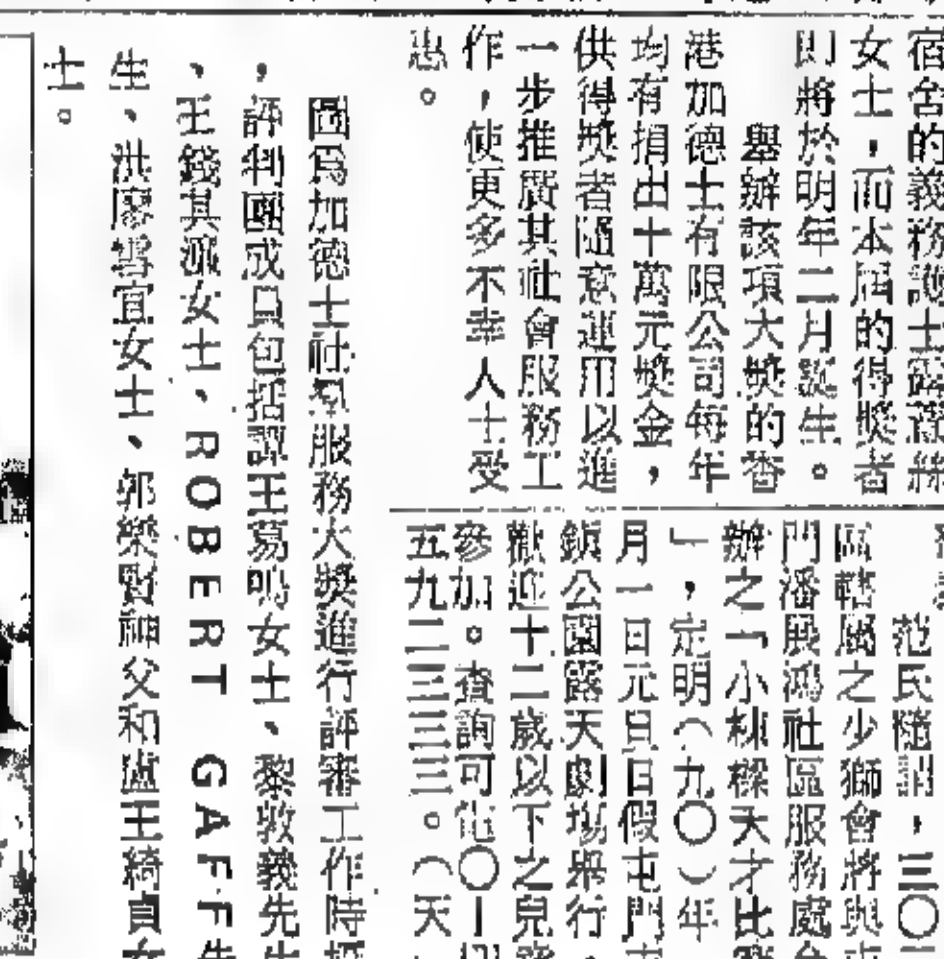 宿舍的義務護士露蕭絲
女士，而本屆的得獎者
即將於明年二月誕生。
舉辦該項大獎的香
港加德士有限公司每年
均有捐出十萬元獎金，
供得獎者隨意運用以進
一步推廣其社會服務工
作，使更多不幸人士受
惠。
范民隨詔，三〇
區轄屬之少獅會將與
門潘展鴻社區服務處
辦之「小棟樑天才比
」，定明（九〇）年
月一日元旦日假屯門
鎮公園露天劇場舉行，
歡迎十二歲以下之兒
參加。查詢可電〇｜
五九二三三三。（天
圖爲加德士社羣服務大獎進行評審工作時
，評判團成員包括譚王葛鳴女士、黎敦義先生
、王錢其濂女士、ROBERT GAFF
生、洪廖雪宜女士、郭樂賢神父和盧王綺貞女
士。